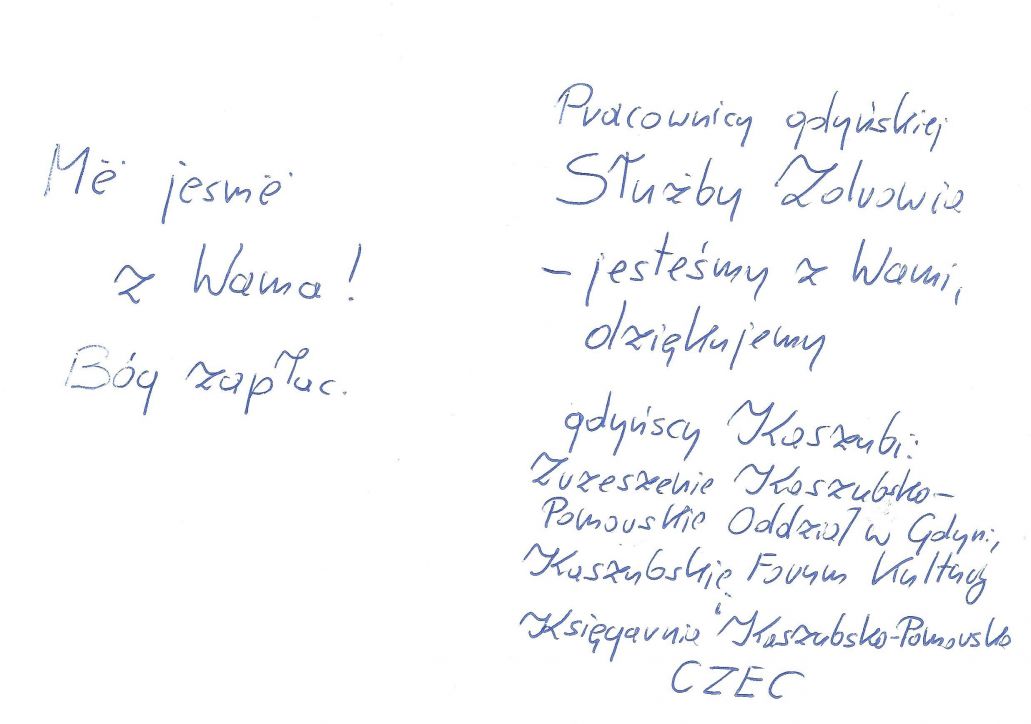 Më jesmë
z Wama!
Bóg zapłac.
Pracownicy gdyńskiej
Służby Zdrowia
- jesteśmy z Wami,
dziękujemy
gdyńscy Kaszubi:
Zrzeszenie Kaszubsko-
Pomorskie Oddział w Gdyni,
Kaszubskie Forum Kultury
i
Księgarnia Kaszubsko-Pomorska
CZEC